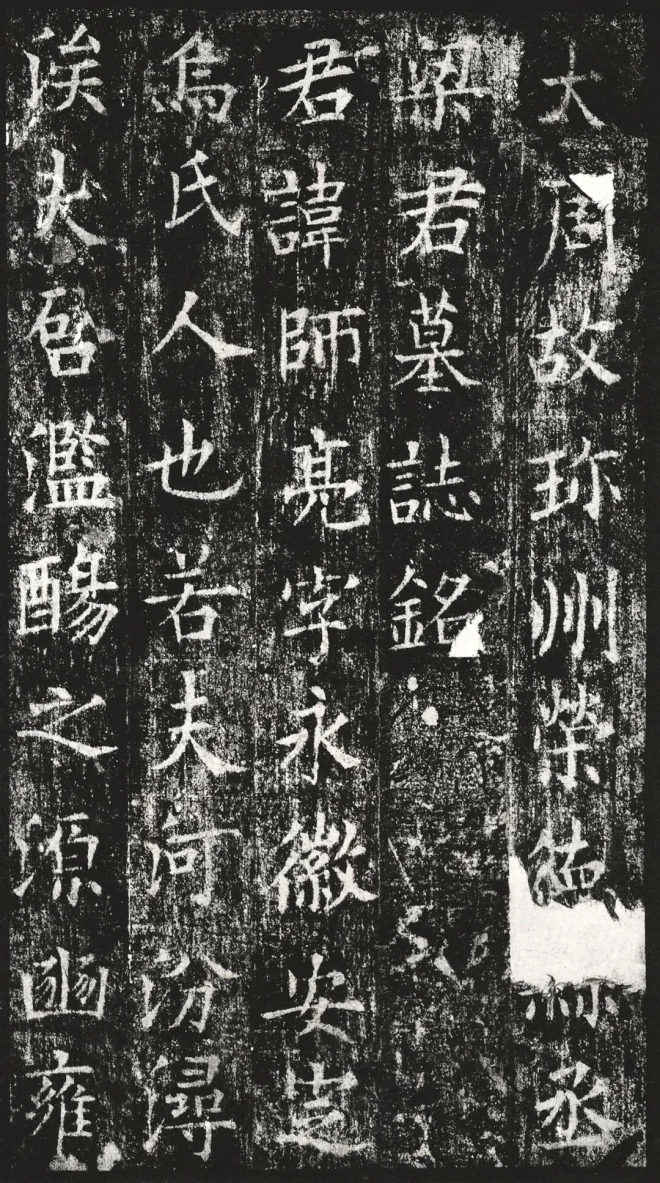 大周故珍州榮德丞
梁君墓誌銘
君諱師亮字永徽安定
烏氏人也若夫河汾潯
涘大啓濫觴之源豳雍